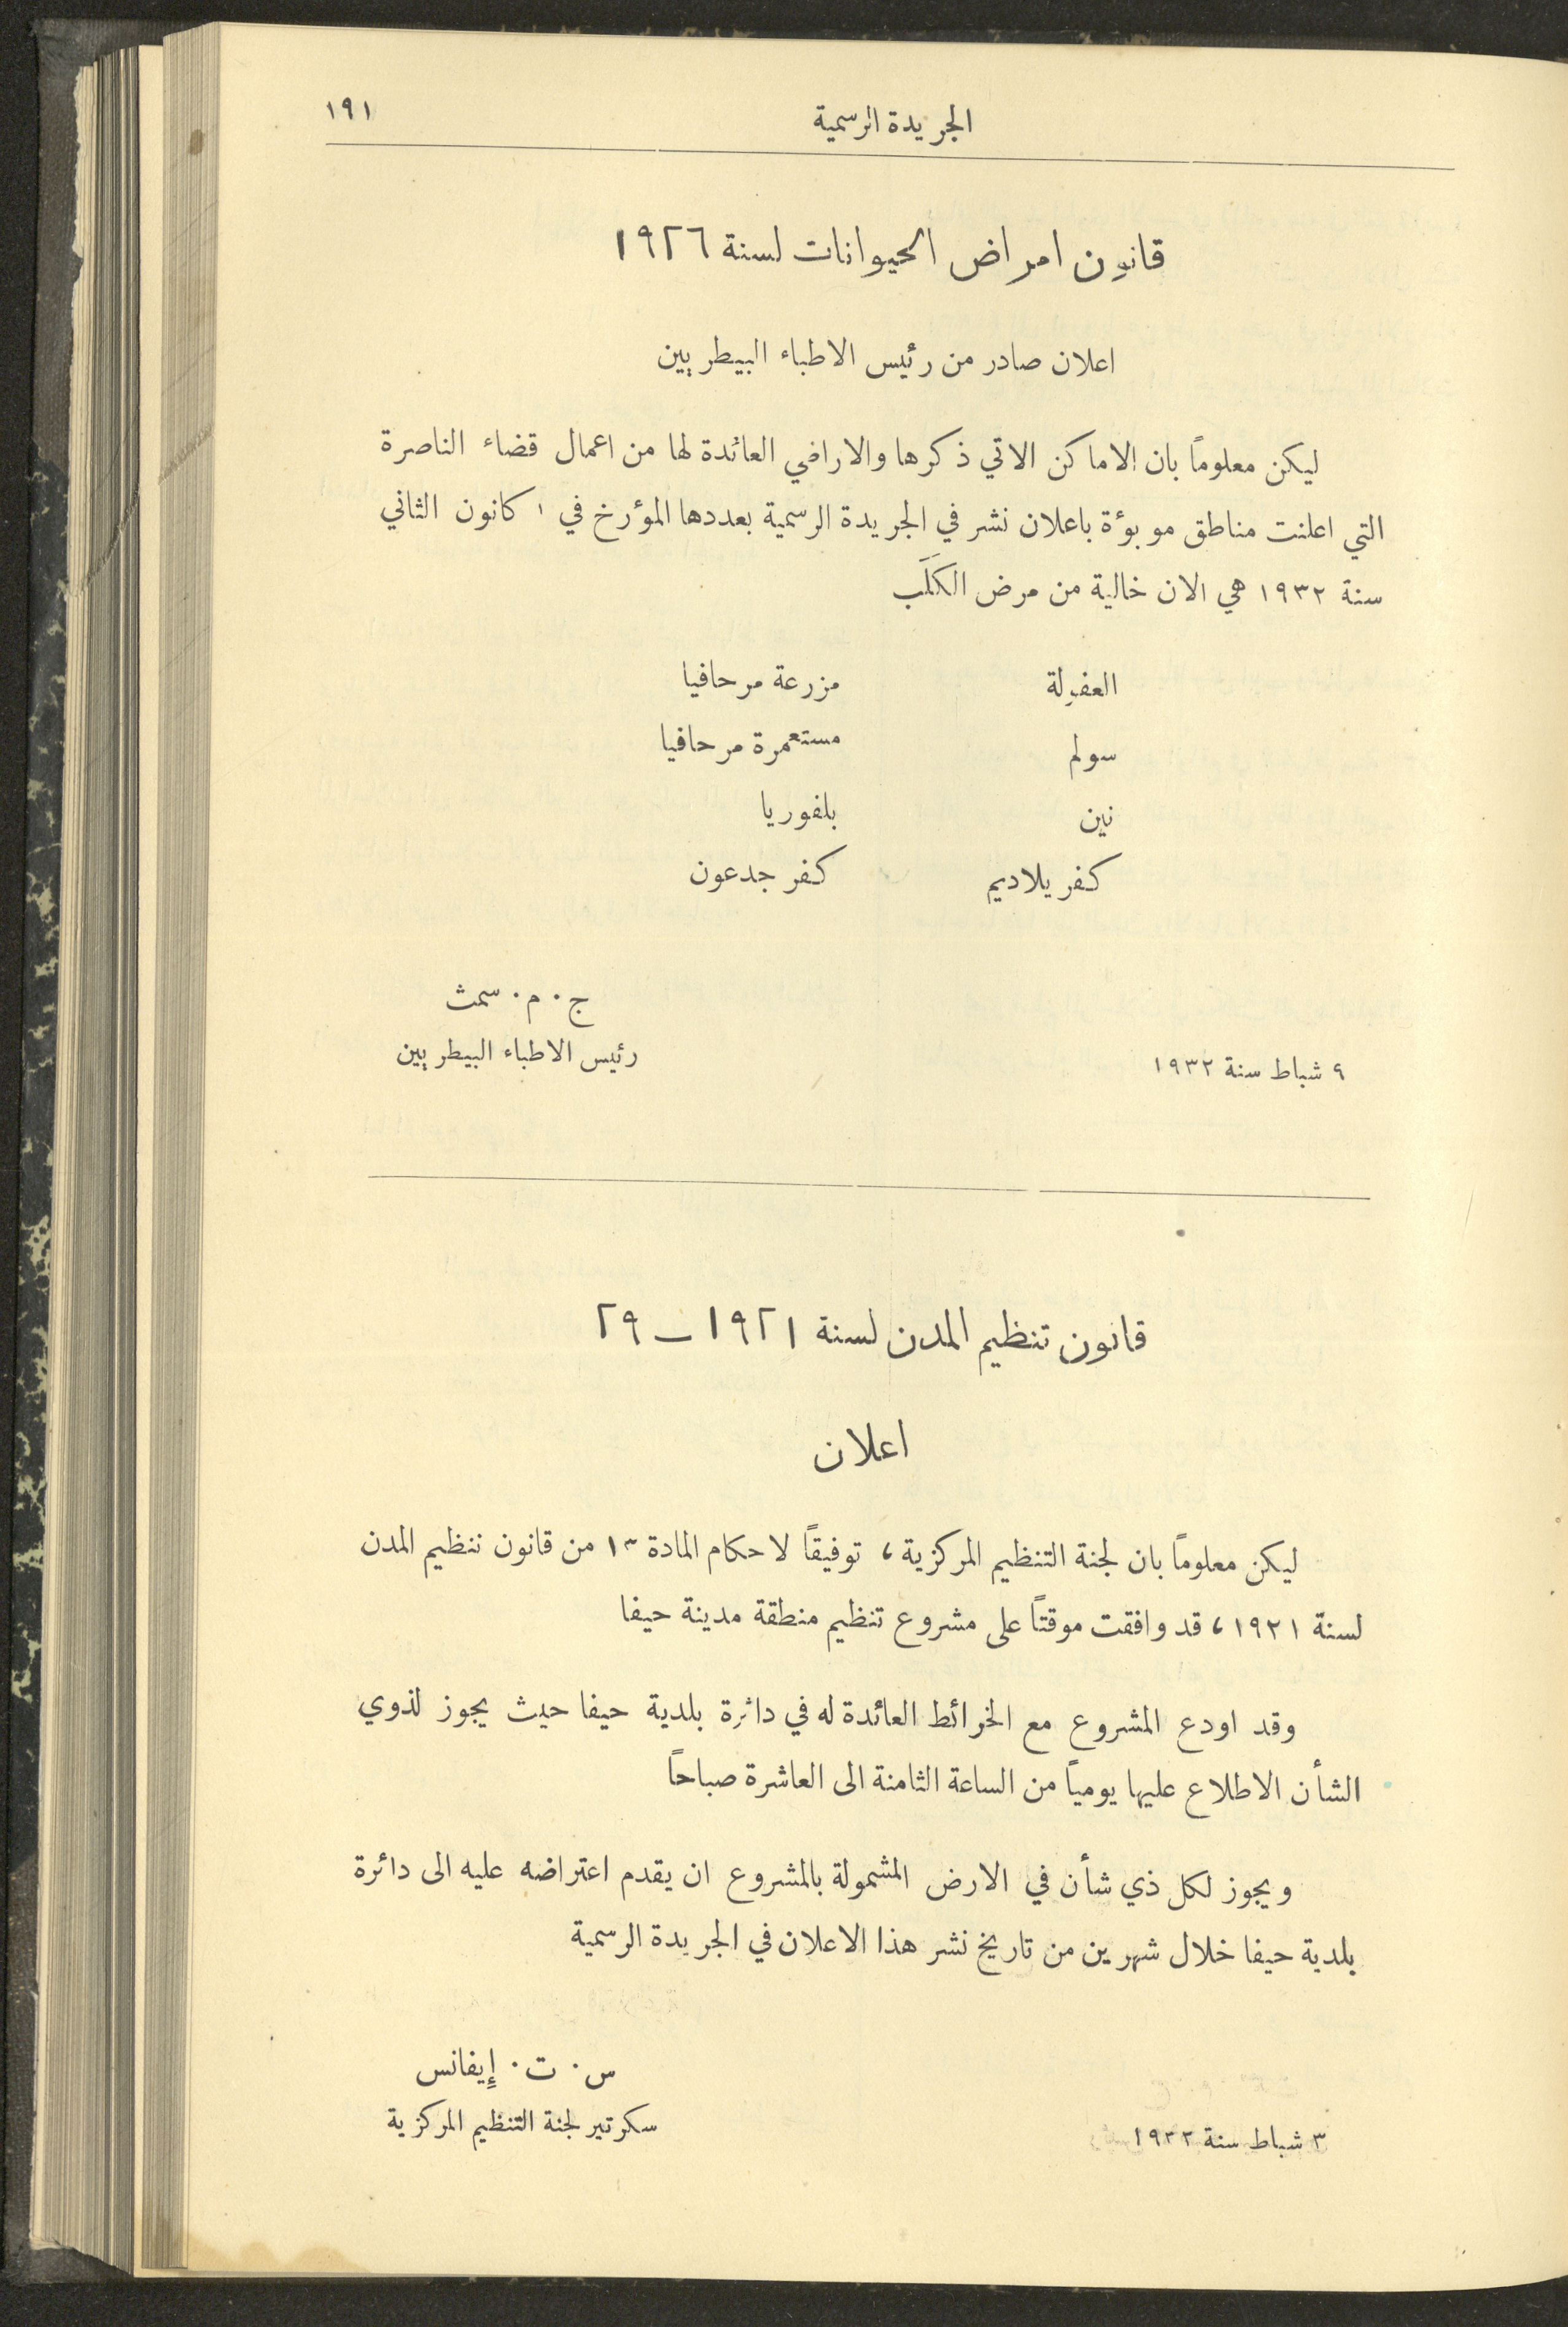 الجريدة الرسمية ١٩١
قانون امراض الحيوانات لسنة ١٩٢٦
اعلان صادر من رئيس الاطباء البيطريين
ليكن معلوماً بان الاماكن الاتي ذكرها والاراضي العائدة لها من اعمال قضاء الناصرة
التي اعلنت مناطق موبوؤة باعلان نشر في الجريدة الرسمية بعددها المؤرخ في ١ كانون الثاني
سنة ١٩٣٢ هي الان خالية من مرض الكَلَب
العفولة مزرعة مرحافيا
سولم مستعمرة مرحافيا
نين بلفوريا
كفر يلاديم كفر جدعون
ج. م. سمث
رئيس الاطباء البيطريين
٩ شباط سنة ١٩٣٢
قانون تنظيم المدن لسنة ١٩٢١ – ٢٩
اعلان
ليكن معلوماً بان لجنة التنظيم المركزية، توفيقاً لاحكام المادة ١٣ من قانون تنظيم المدن
لسنة ١٩٢١، قد وافقت موقتاً على مشروع تنظيم منطقة مدينة حيفا
وقد اودع المشروع مع الخرائط العائدة له في دائرة بلدية حيفا حيث يجوز لذوي
الشأن الاطلاع عليها يومياً من الساعة الثامنة الى العاشرة صباحاً
ويجوز لكل ذي شأن في الارض المشمولة بالمشروع ان يقدم اعتراضه عليه الى دائرة
بلدية حيفا خلال شهرين من تاريخ نشر هذا الاعلان في الجريدة الرسمية
س. ت. إيفانس
سكرتير لجنة التنظيم المركزية
٣ شباط سنة ١٩٣٢